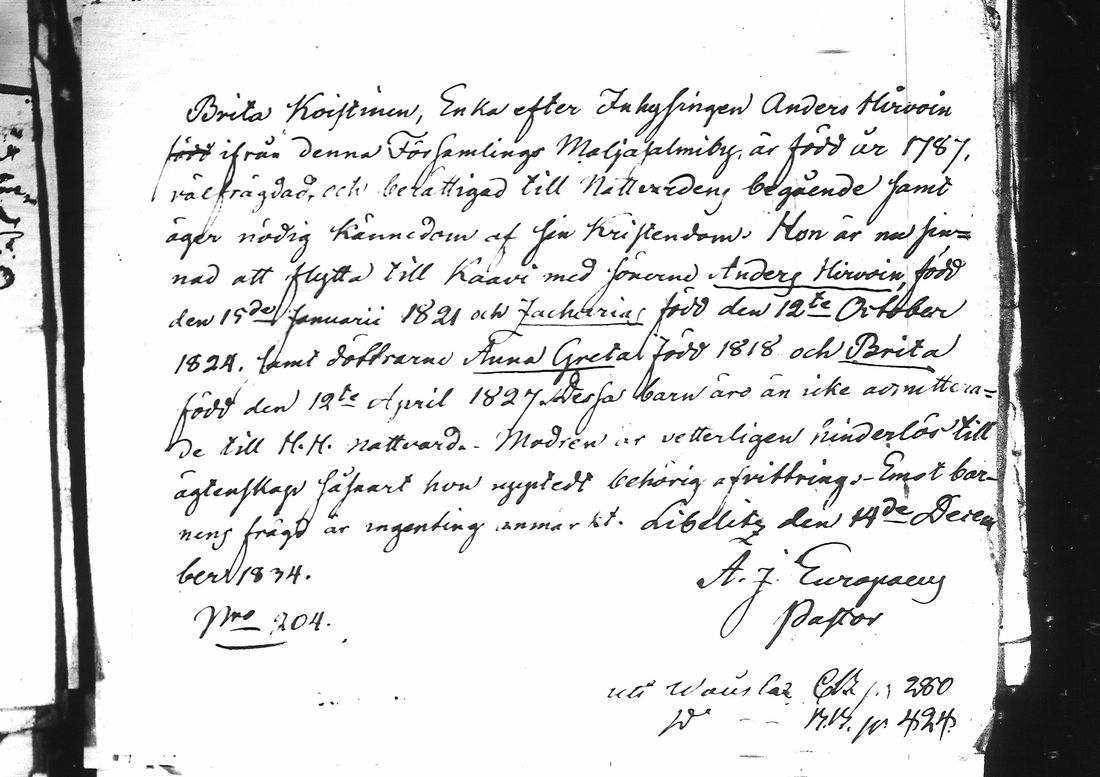 Brita Koistinen, Enka efter Inhysingen Anders Hirvoin
född ifrån denna Församlings Maljasalmiby, är född år 1787,
välfrägdad, och berättigad till Nattvardens begående samt
äger nödig kännedom af sin Kristendom. Hon är nu sin=
nad att flytta till Kaavi med sönerne Anders Hirvoin, född
den 15de Januarii 1821 och Zacharias född den 12te October
1824. samt döttrarne Anna Greta född 1818 och Brita
född den 12te April 1827. Dessa barn äro än icke admittera=
de till H.H. nattvard. - Modren är vetterligen hinderlös till
ägtenskap såsnart hon upptedt behörig afvittring. - Emot bar-
nens frägd är ingenting anmärkt. Libelitz den 14de Decem
ber 1834.
A. J. Europaeus
Pastor
Nro 204.
C.B. p. 280
p. 424.